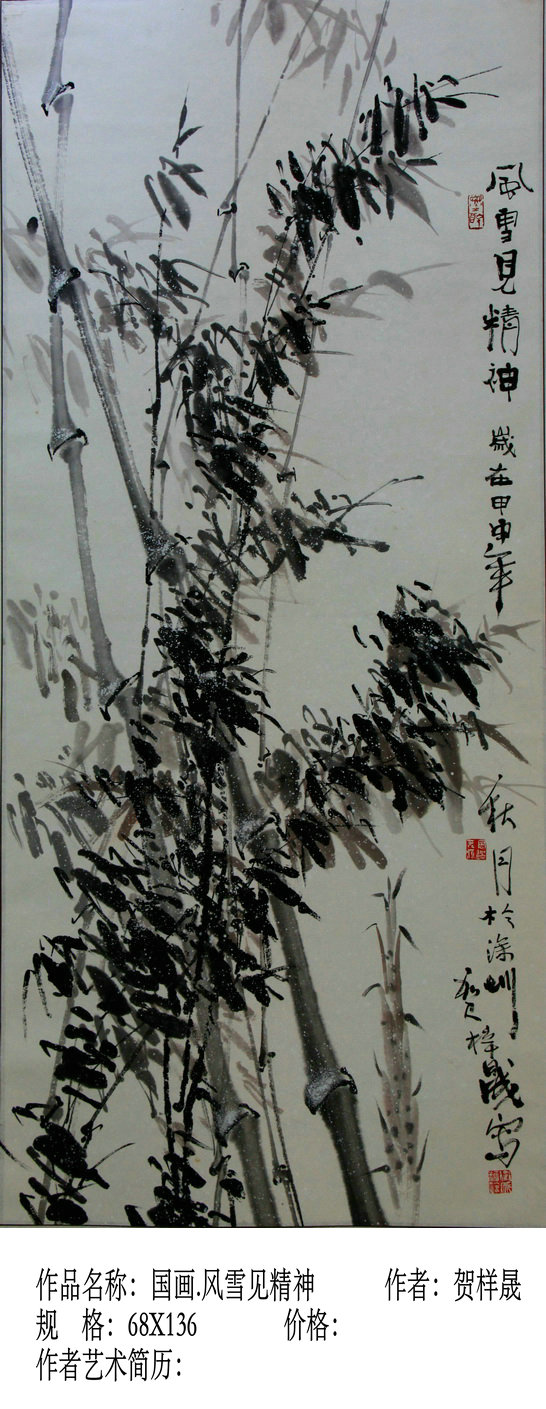 風雪見精神
歲在甲申年
秋月於深圳
賀樣晟寫
作品名称：国画.风雪见精神 作者：贺样晟
规 格：68X136 价格：
作者艺术简历：